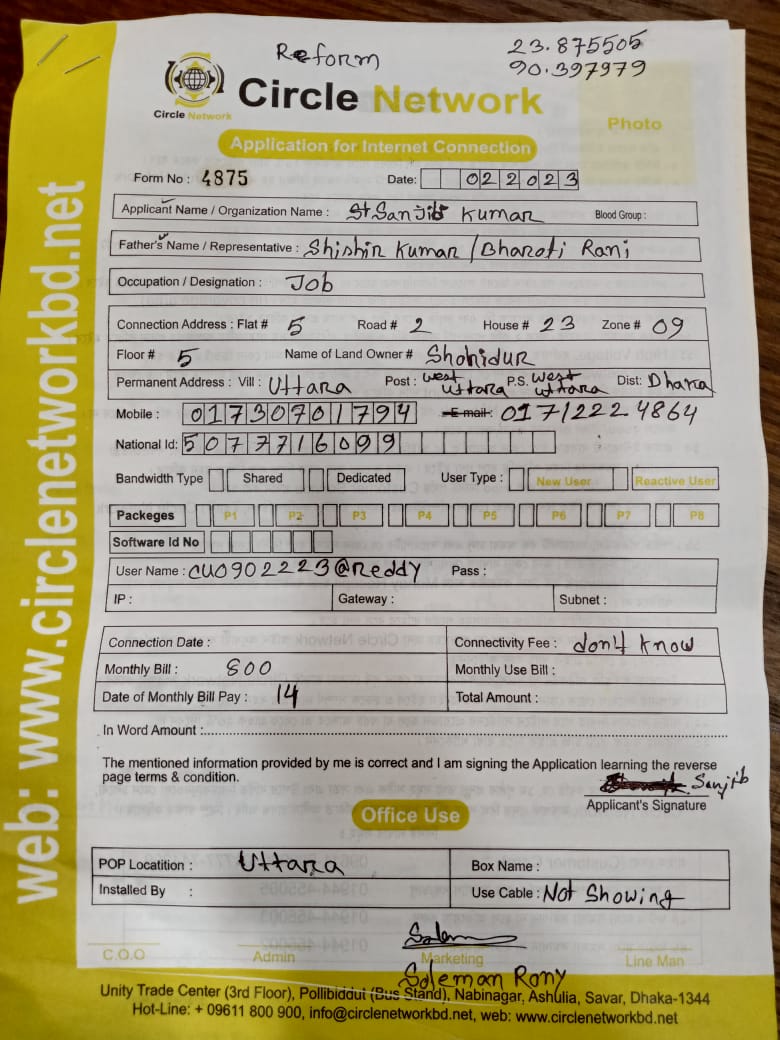 Reform
23.875505
90.397979
Circle Network
Circle Network
Photo
Application for Internet Connection
Form No : 4875 Date: 022023
Applicant Name / Organization Name : St Sanjib Kumar Blood Group :
Father's Name / Representative : Shishir Kumar / Bharoti Rani
Occupation / Designation : Job
Connection Address : Flat # 5 Road # 2 House # 23 Zone # 09
Floor # 5 Name of Land Owner # Shohidur
Permanent Address : Vill : Uttara Post : West Uttara P.S. West Uttara Dist: Dhaka
Mobile : 01730701794 E-mail : 01712224864
National Id: 5077716099
Bandwidth Type Shared Dedicated User Type : New User Reactive User
Packeges P1 P2 P3 P4 P5 P6 P7 P8
Software Id No
User Name : CUO902223@Reddy Pass :
IP : Gateway : Subnet :
Connection Date : Connectivity Fee : don't know
Monthly Bill : 800 Monthly Use Bill :
Date of Monthly Bill Pay : 14 Total Amount :
In Word Amount :
The mentioned information provided by me is correct and I am signing the Application learning the reverse
page terms & condition.
Sanjib
Applicant's Signature
Office Use
POP Locatition : Uttara Box Name :
Installed By : Use Cable : Not Showing
C.O.O Admin Marketing Line Man
Soleman Rony
Unity Trade Center (3rd Floor), Pollibiddut (Bus Stand), Nabinagar, Ashulia, Savar, Dhaka-1344
Hot-Line: + 09611 800 900, info@circlenetworkbd.net, web: www.circlenetworkbd.net
web: www.circlenetworkbd.net